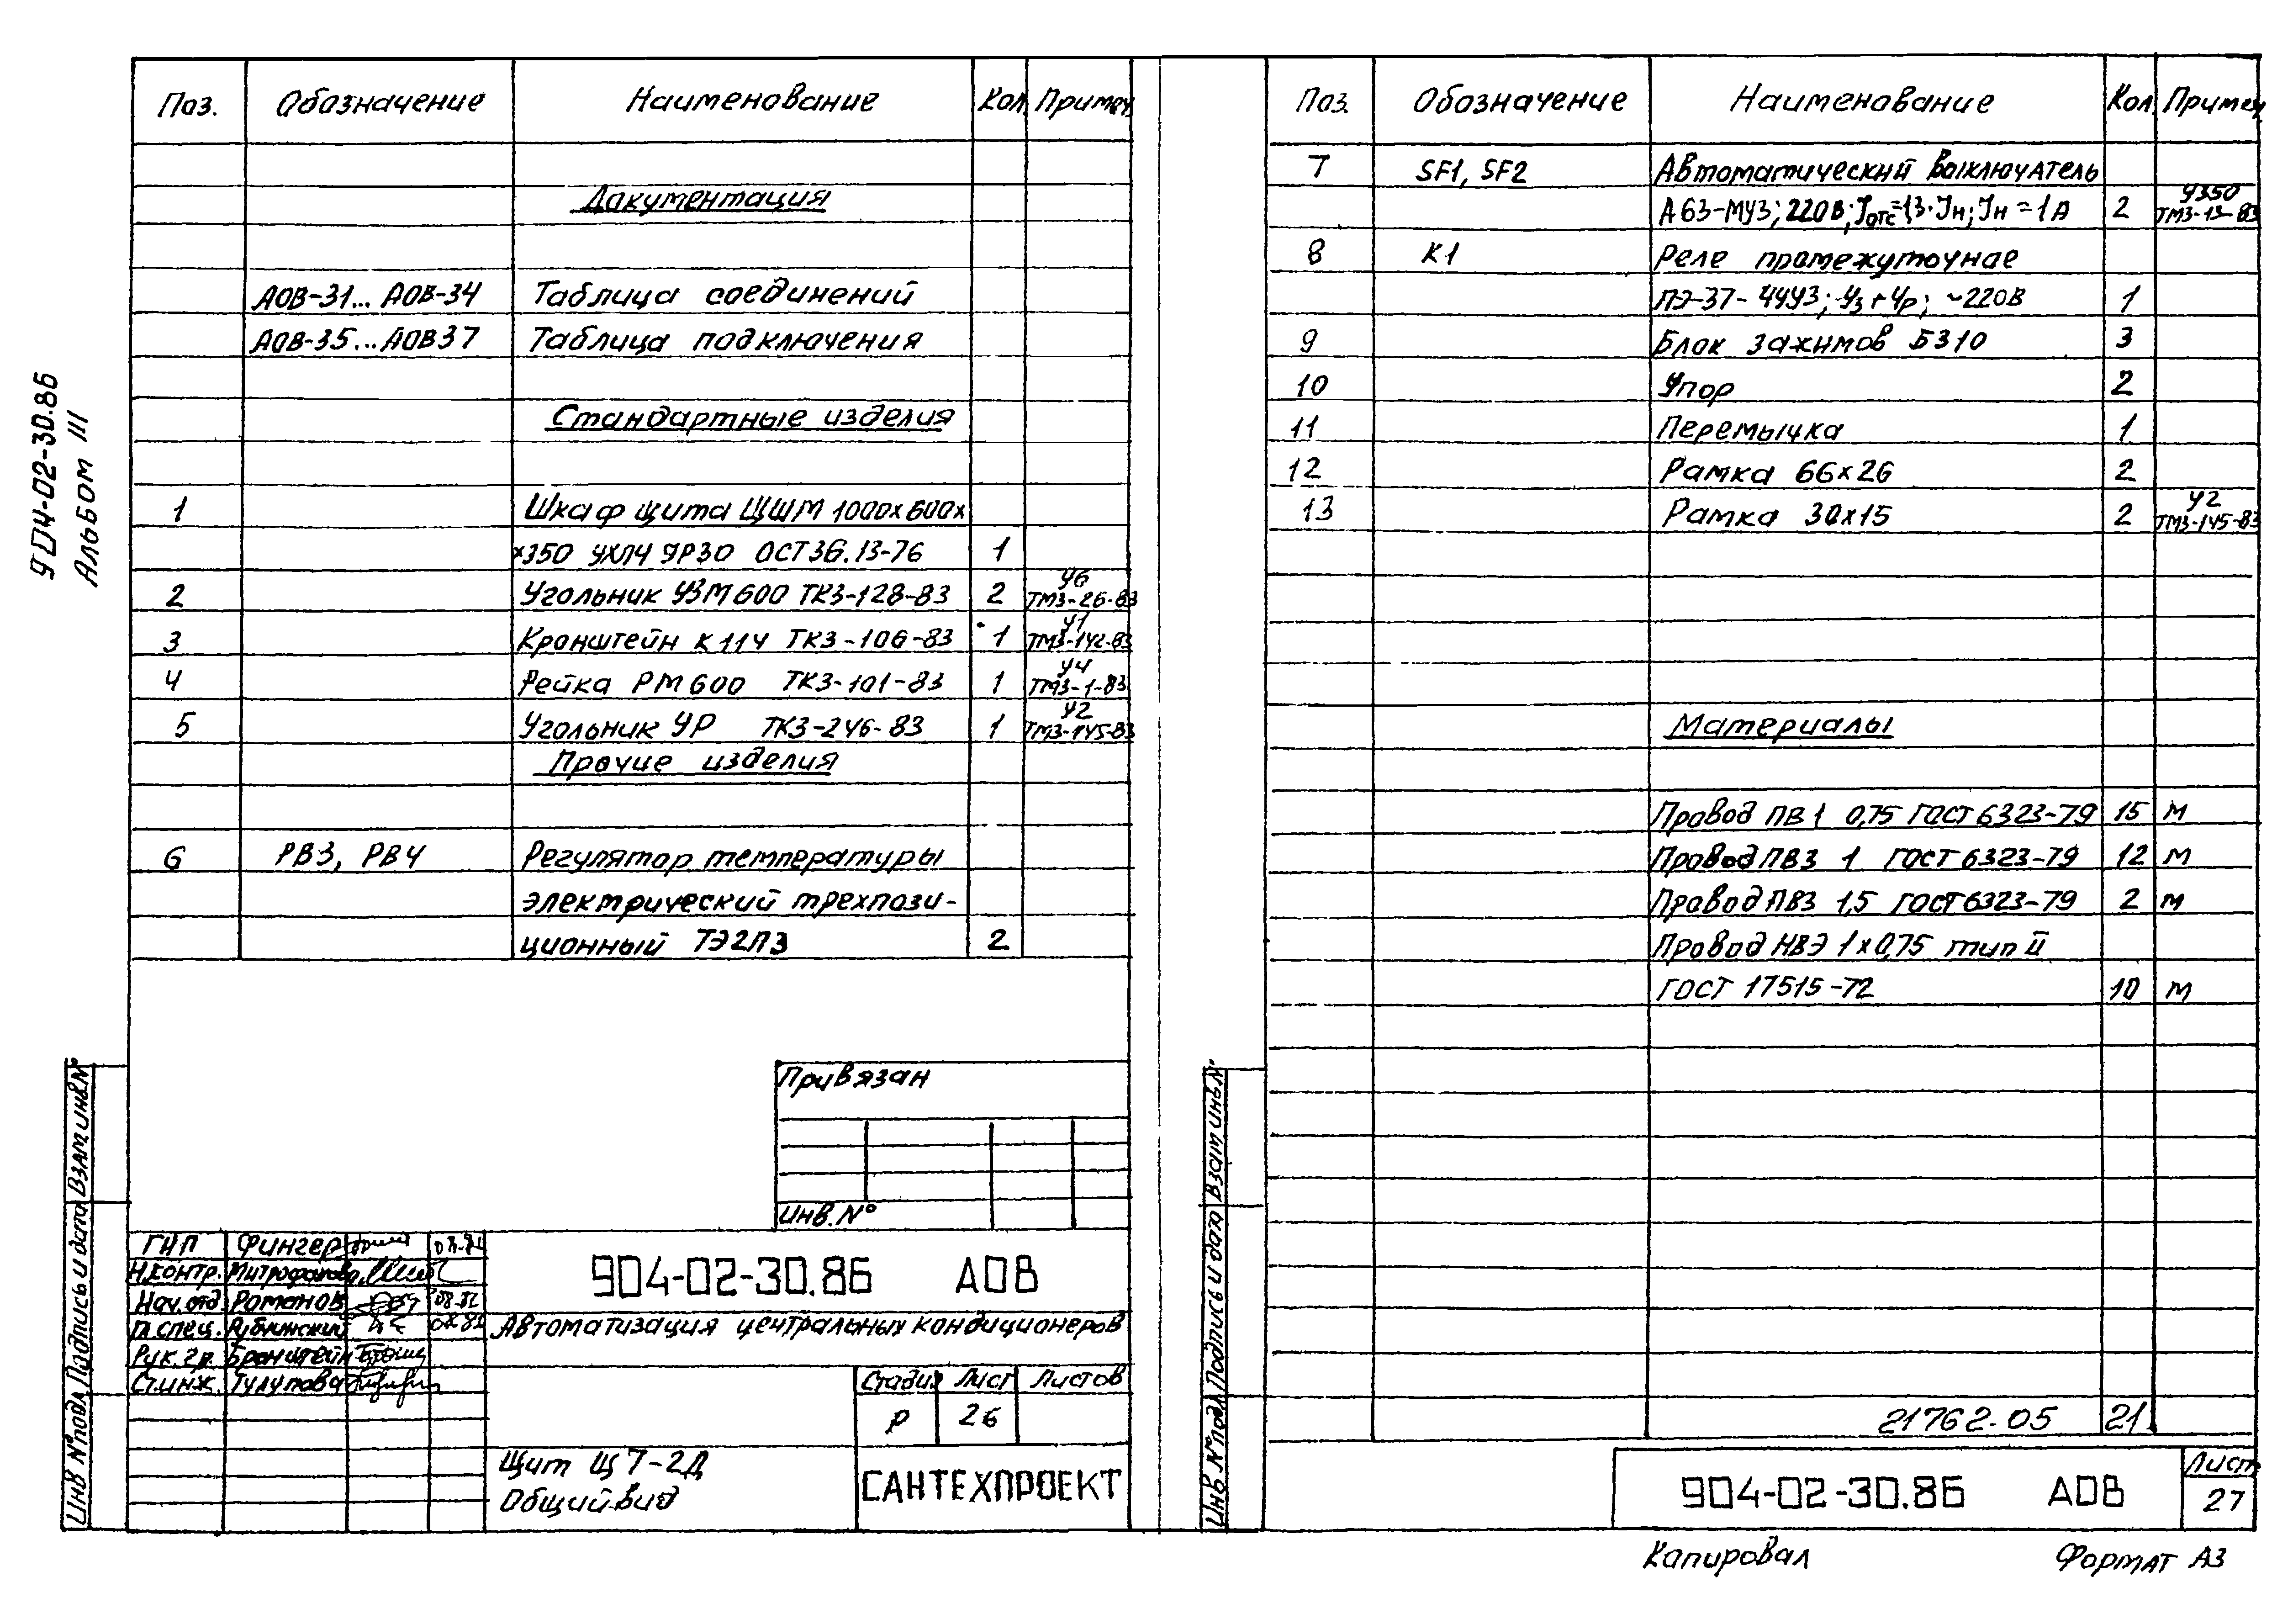 904-02-30.86
Альбом III
Поз. Обозначение Наименование Кол. Примеч.
Документация
АОВ-31... АОВ-34 Таблица соединений
АОВ-35... АОВ37 Таблица подключения
Стандартные изделия
1 Шкаф щита ЩШМ 1000х600х
х350 УХЛ4 УР30 ОСТ36.13-76 1
2 Угольник УЗМ600 ТК3-128-83 2 У6 ТМ3-26-83
3 Кронштейн К114 ТК3-106-83 1 У1 ТМ3-142-83
4 Рейка РМ600 ТК3-101-83 1 У4 ТМ3-1-83
5 Угольник УР ТК3-246-83 1 У2 ТМ3-145-83
Прочие изделия
6 РВ3, РВ4 Регулятор температуры
электрический трехпози-
ционный ТЭ2П3 2
Привязан
Инв.№
ГИП Фингер
Н.контр. Митрофанова
Нач.отд. Романов 08.82
Гл.спец. Рублинский
Рук.гр. Бронштейн
Ст.инж. Тулупова
904-02-30.86 АОВ
Автоматизация центральных кондиционеров
Стадия Лист Листов
Р 26
Щит Щ7-2Д
Общий вид
САНТЕХПРОЕКТ
Инв №подл. Подпись и дата Взам.инв.№
Поз. Обозначение Наименование Кол. Примеч.
7 SF1, SF2 Автоматический выключатель
А63-МУ3; 220В; Iотс=1,3·Iн; Iн=1А 2 У350 ТМ3-13-83
8 К1 Реле промежуточное
ПЭ-37-44У3; 4з+4р; ~220В 1
9 Блок зажимов БЗ10 3
10 Упор 2
11 Перемычка 1
12 Рамка 66х26 2
13 Рамка 30х15 2 У2 ТМ3-145-83
Материалы
Провод ПВ1 0,75 ГОСТ 6323-79 15 м
Провод ПВ3 1 ГОСТ 6323-79 12 м
Провод ПВ3 1,5 ГОСТ 6323-79 2 м
Провод НВЭ 1х0,75 тип II
ГОСТ 17515-72 10 м
21762-05 21
904-02-30.86 АОВ
Лист
27
Инв №подл. Подпись и дата Взам инв.№
Копировал Формат А3